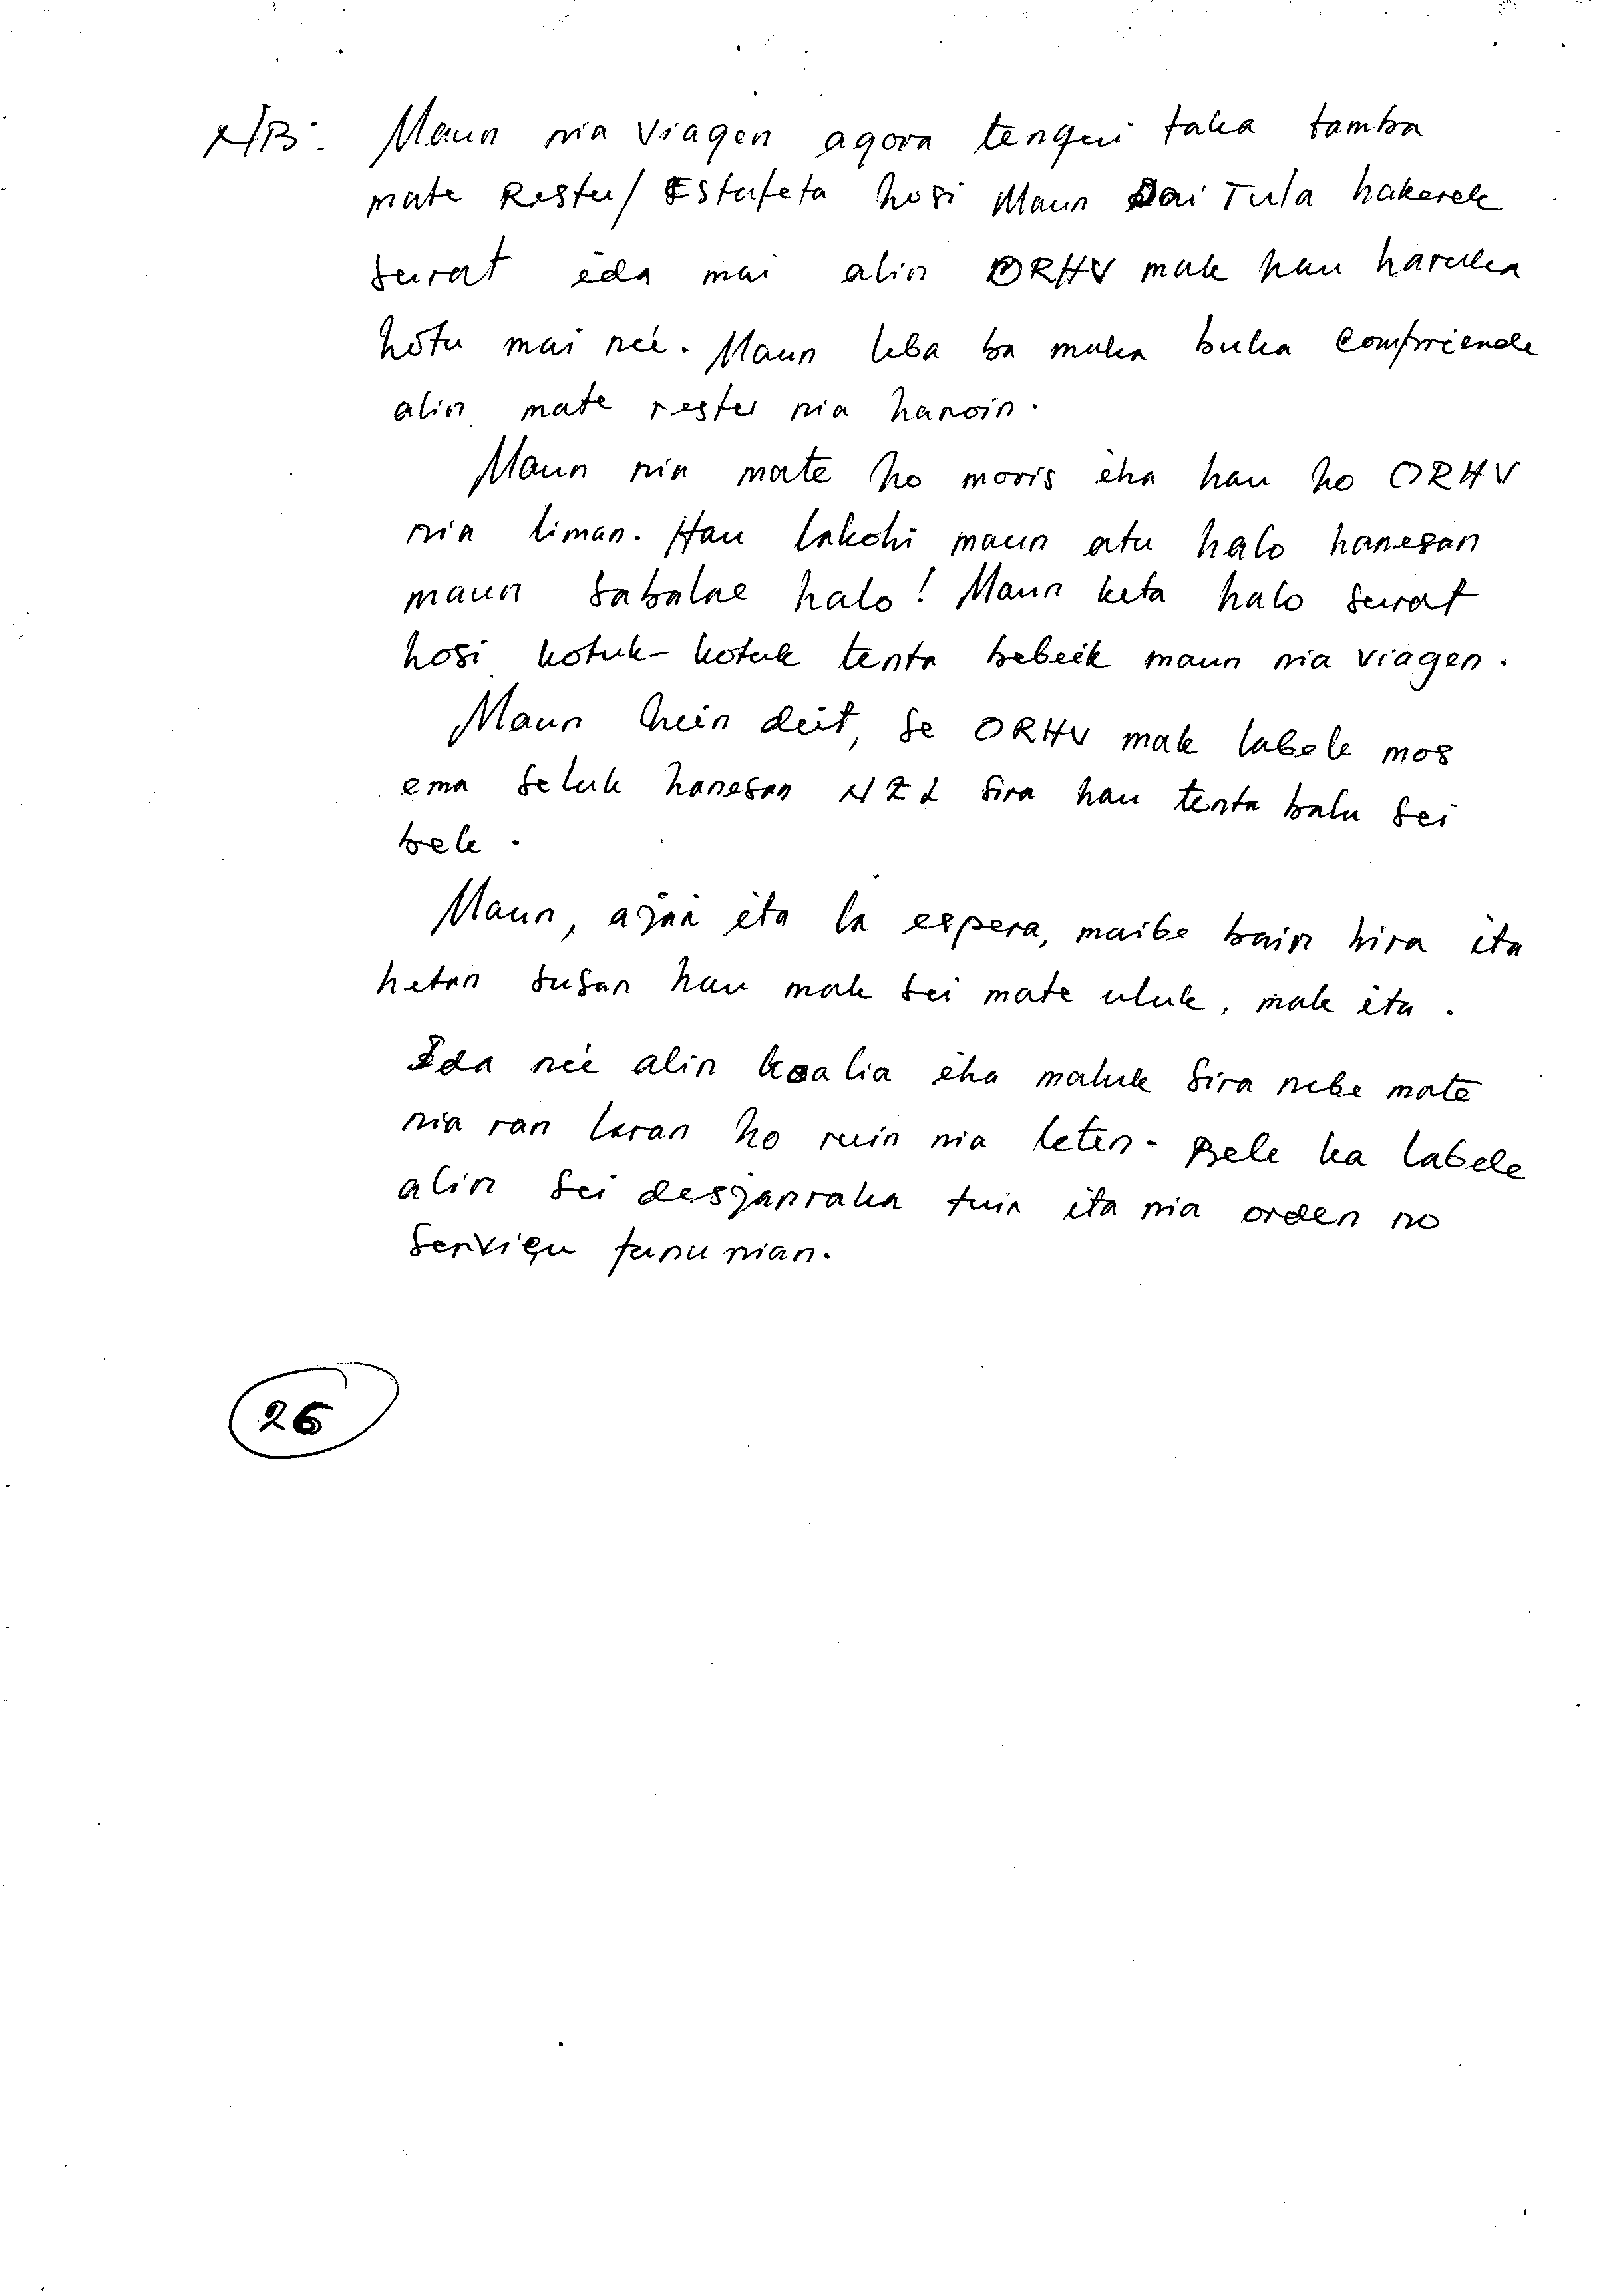 N/B: Maun nia viagen agora tenqui taka tamba
mate Restu/ Estafeta hosi Maun Dai Tula hakerek
surat èda mai alin ORHV mak hau haruka
hotu mai neé. Maun leba ba maka buka compriende
alin mate restu nia hanoin.
Maun nia mate ho moris èha hau ho ORHV
nia liman. Hau lakohi maun atu halo hanesan
maun sabalae halo! Maun keta halo surat
hosi kotuk-kotuk tenta bebeik maun nia viagen.
Maun hein deit, se ORHV mak labele mos
ema seluk hanesan NZL sira hau tenta balu sei
bele.
Maun, ajaa èta la espera, maibe bain hira ita
hetan susan hau mak sei mate uluk, mak èta.
Ida neè alin koalia èha maluk sira nebe mate
nia ran laran ho ruin nia leten. Bele ka labele
alin sei desjanraka tuir ita nia orden no
serviçu funu nian.
26